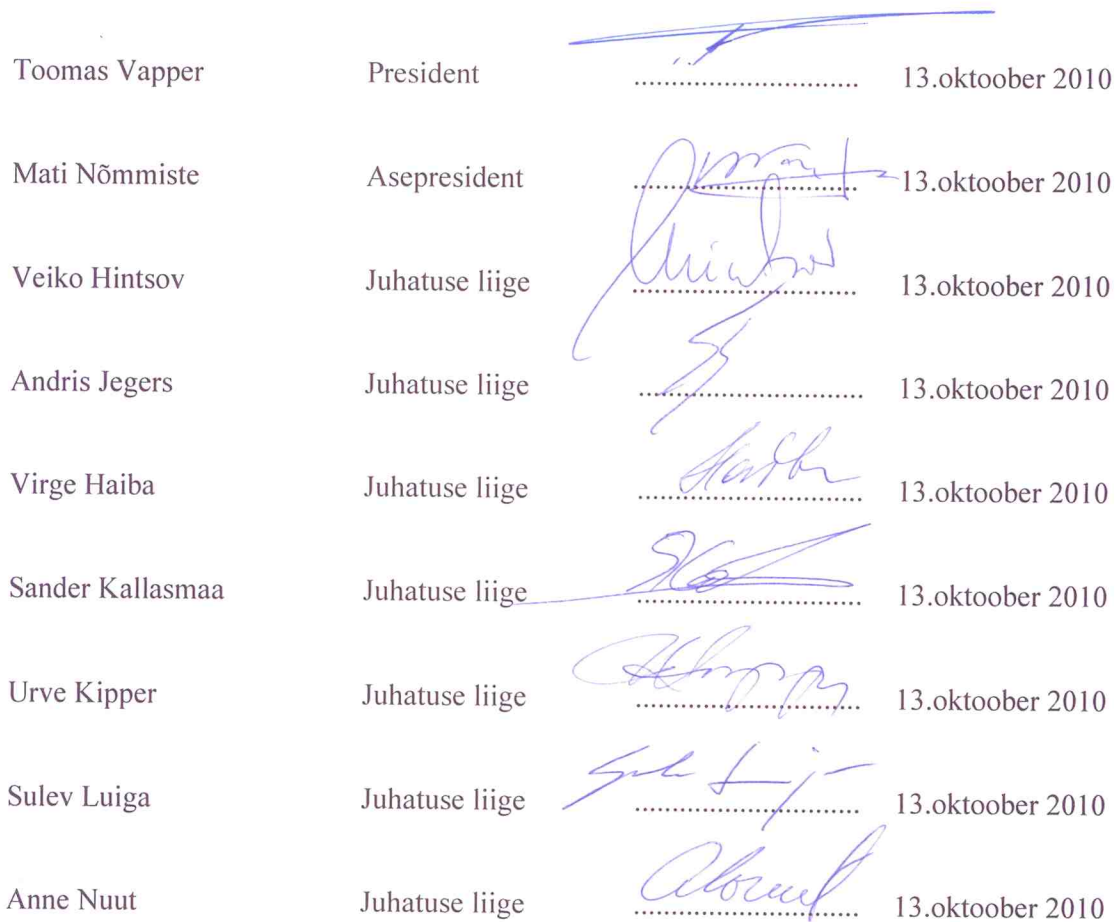 Toomas Vapper President .............................. 13.oktoober 2010
Mati Nõmmiste Asepresident .............................. 13.oktoober 2010
Veiko Hintsov Juhatuse liige .............................. 13.oktoober 2010
Andris Jegers Juhatuse liige .............................. 13.oktoober 2010
Virge Haiba Juhatuse liige .............................. 13.oktoober 2010
Sander Kallasmaa Juhatuse liige .............................. 13.oktoober 2010
Urve Kipper Juhatuse liige .............................. 13.oktoober 2010
Sulev Luiga Juhatuse liige .............................. 13.oktoober 2010
Anne Nuut Juhatuse liige .............................. 13.oktoober 2010